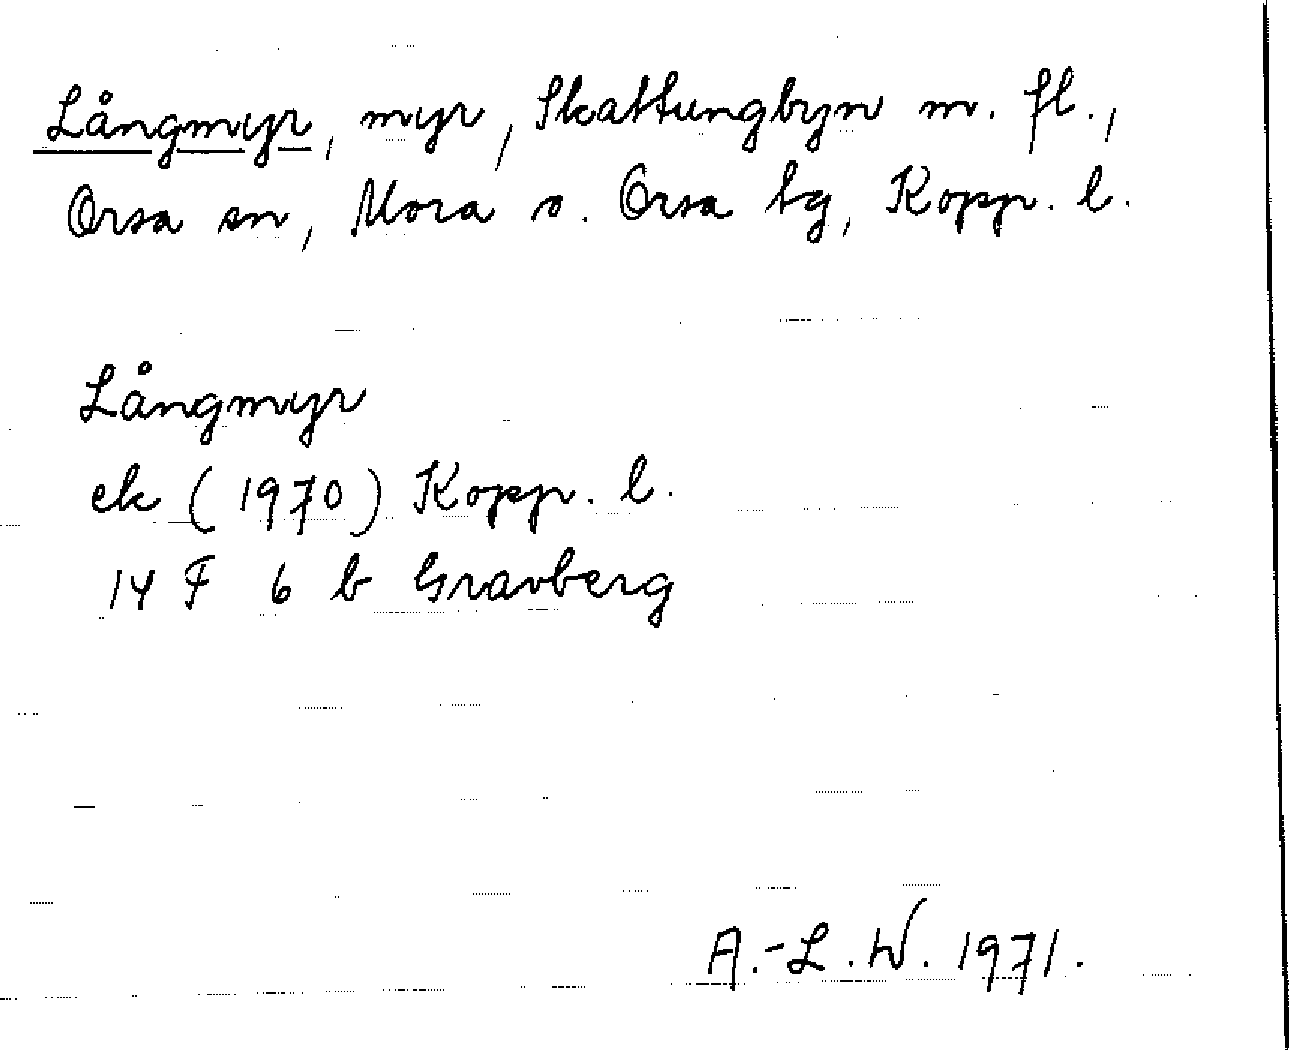 Långmyr, myr, Skattungbyn m. fl.,
Orsa sn, Mora o. Orsa tg, Kopp. l.
Långmyr
ek (1970) Kopp. l.
14 F 6 b Gravberg
A.-L. W. 1971.